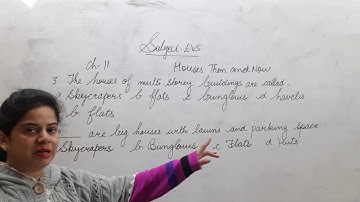 Subject-EVS
Ch-11 Houses Then and Now
3 The houses of multi storey buildings are called.
a Skycrapers b flats c bunglows d havelis
b flats
are big houses with lawns and parking space
Skycrapers b Bunglows c Flats d Huts